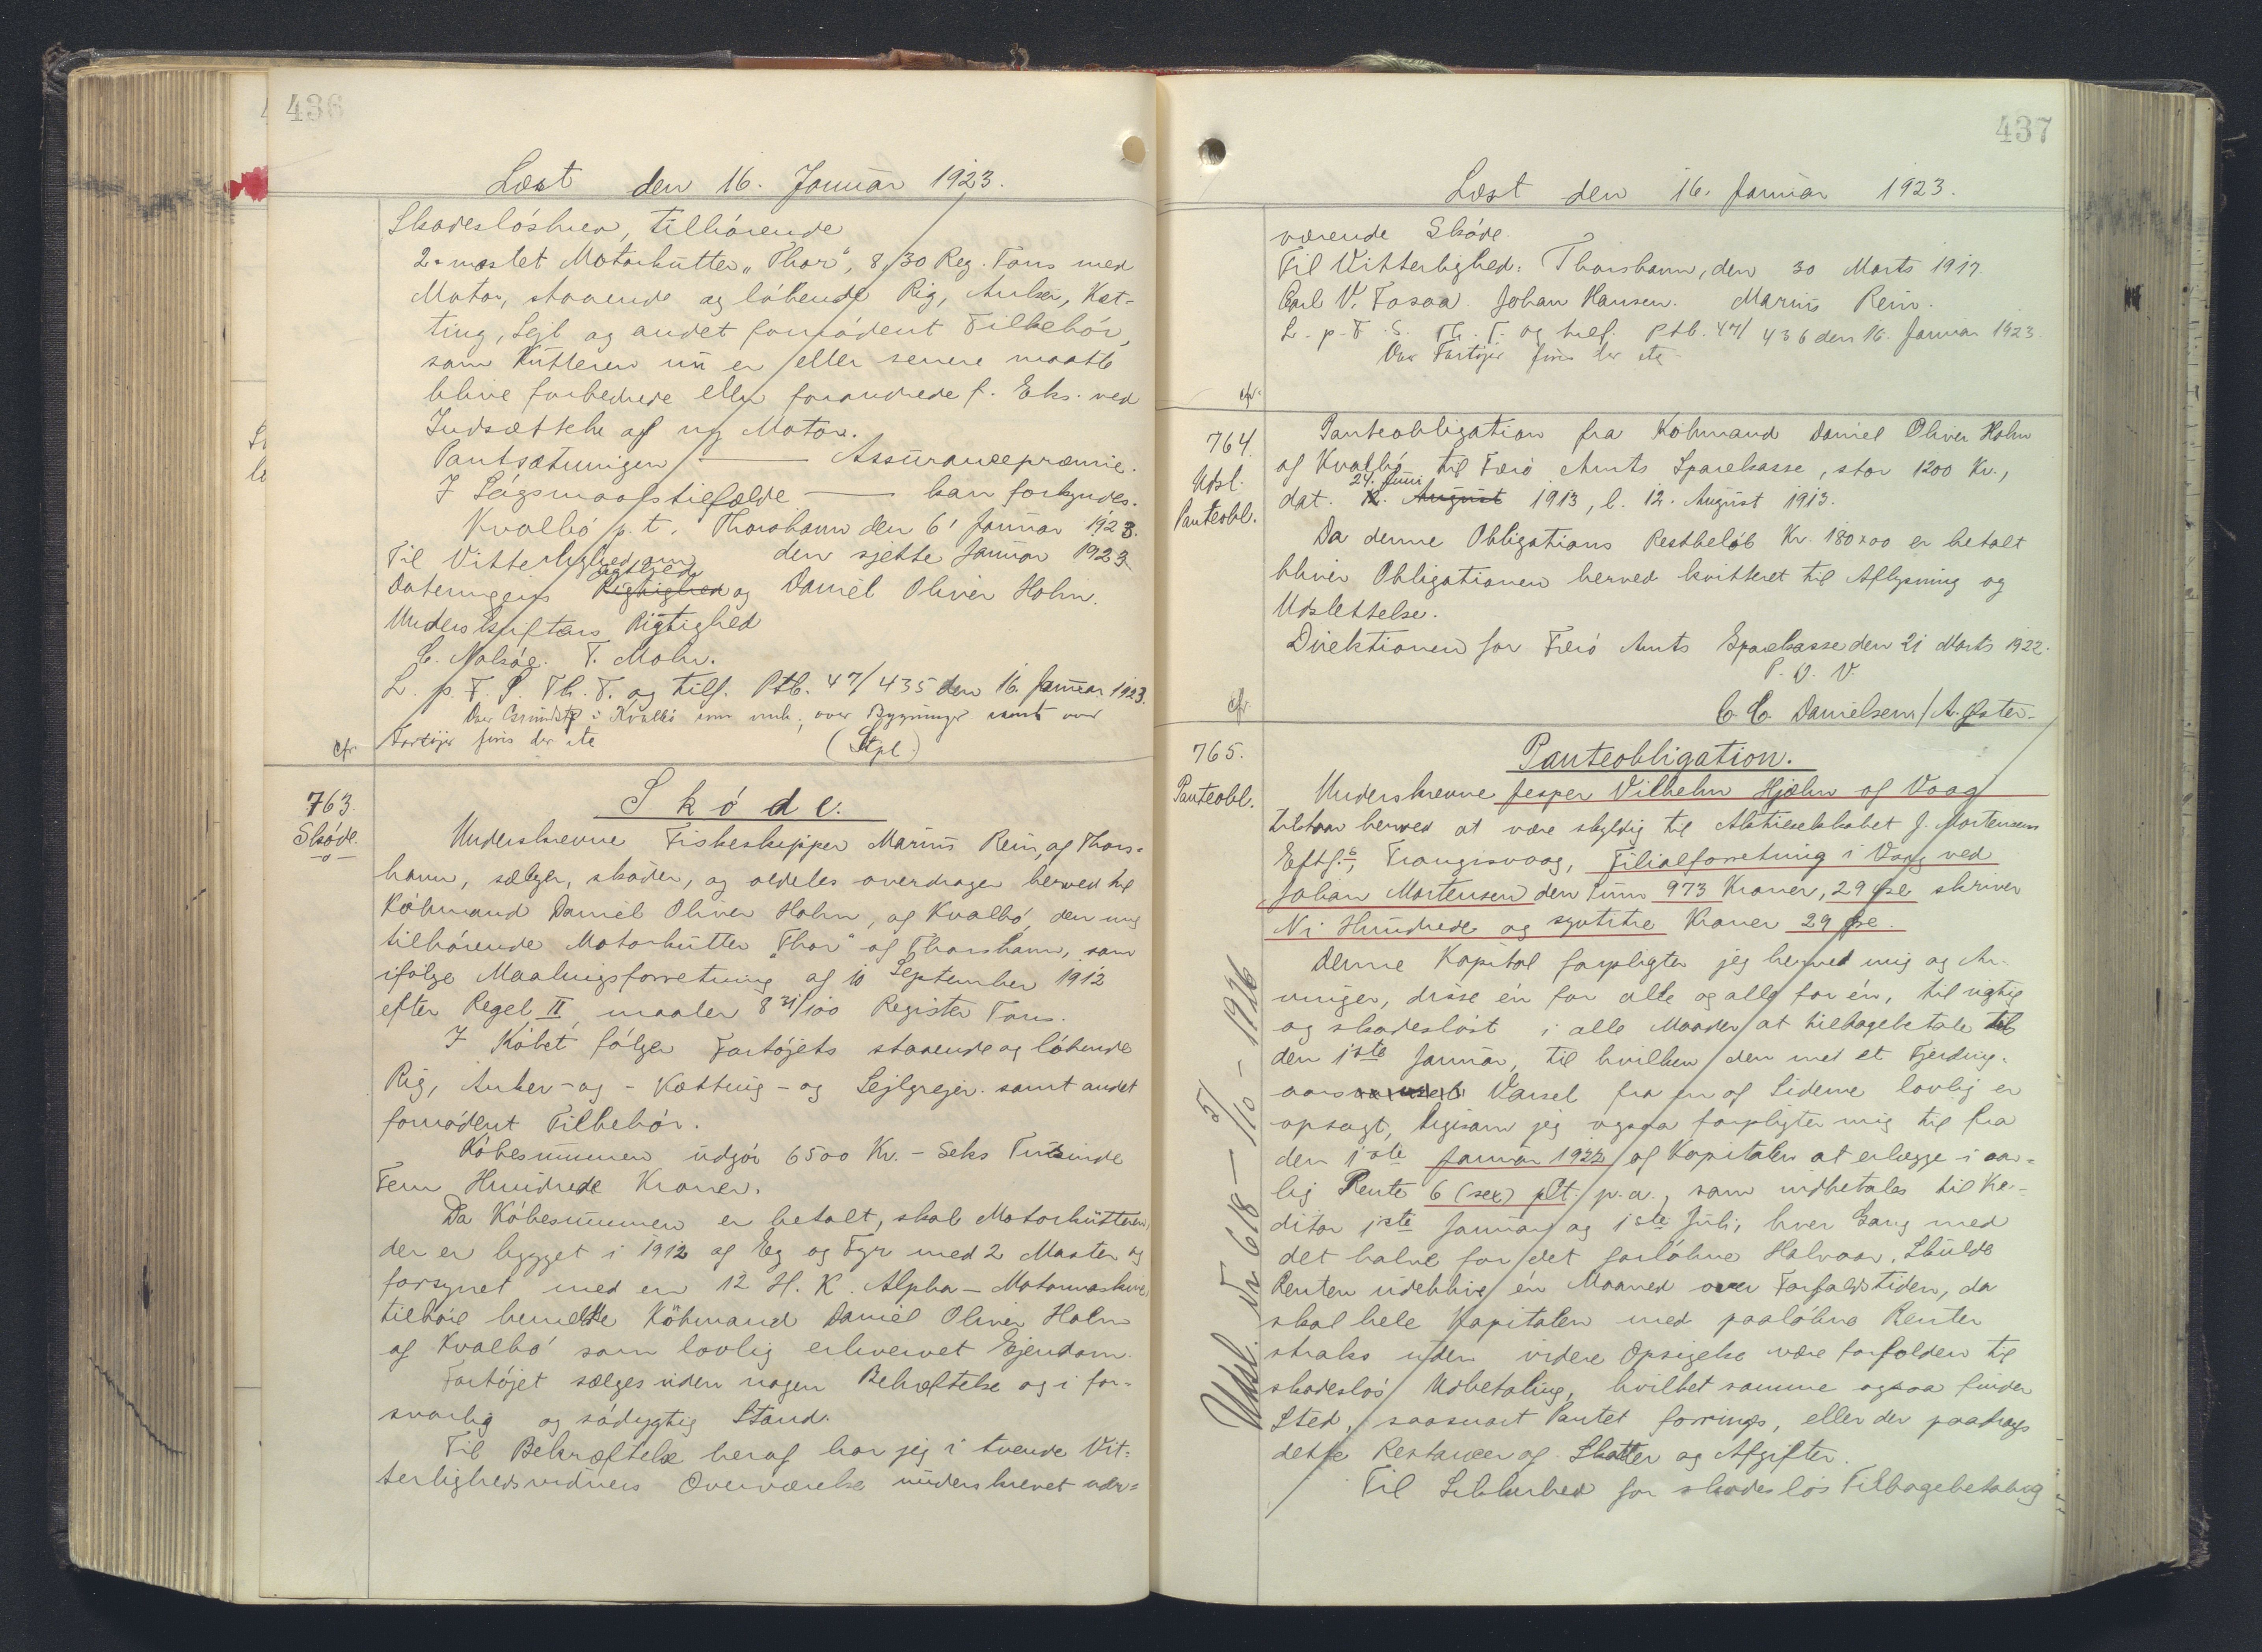 436
Læst den 16. Januar 1923.
Skadesløsbrev, tilhørende
2-mastet Motorkutter „Thor“, 8,30 Reg. Tons med
Motor, staaende og løbende Rig, Anker, Kæt-
ting, Sejl og andet fornødent Tilbehør,
som Kutteren nu er eller senere maatte
blive forbedrede eller forandrede f. Eks. ved
Indsættelse af ny Motor.
Pantsætningen — Assurancepræmie.
I Søgsmaalstilfælde — kan forkyndes.
Kvalbø p. t. Thorshavn den 6' Januar 1923.
Til Vitterlighed om den sjette Januar 1923
Dateringens Ægthed Rigtighed og Daniel Oliver Holm.
Underskriftens Rigtighed
C. Nolsøe. T. Mohr.
L. p. F. S. Th. T. og tilf. Ptb. 47/435 den 16. Januar 1923.
Over Grundstk i Kvalbø som omh., over Bygninger samt over
cfr. Fartøjer fins der ikke (Stpl.)
763.
Skøde.
Skøde.
Underskrevne Fiskeskipper Marius Rein, af Thors-
havn, sælger, skøder, og aldeles overdrager herved til
Købmand Daniel Oliver Holm, af Kvalbø, den mig
tilhørende Motorkutter „Thor“ af Thorshavn, som
ifølge Maalingsforretning af 10 September 1912
efter Regel II, maaler 8 31/100 Register Tons.
I Købet følger Fartøjets staaende og løbende
Rig, Anker- og - Kætting - og Sejlgrejer samt andet
fornødent Tilbehør.
Købesummen udgør 6500 Kr. - Seks Tusinde
Fem Hundrede Kroner.
Da Købesummen er betalt, skal Motorkutteren,
der er bygget i 1912 af Eg og Fyr med 2 Master og
forsynet med en 12 H. K. Alpha - Motormaskine,
tilhøre bemeldte Købmand Daniel Oliver Holm
af Kvalbø som lovlig erhvervet Ejendom.
Fartøjet sælges uden nogen Behæftelse og i for-
svarlig og sødygtig Stand.
Til Bekræftelse heraf har jeg i tvende Vit-
terlighedsvidners Overværelse underskrevet nær-
437
Læst den 16. Januar 1923.
værende Skøde.
Til Vitterlighed: Thorshavn, den 30 Marts 1917.
Carl V. Fosaa. Johan Hansen. Marius Rein.
L. p. F. S. Th. T. og tilf. Ptb. 47/436 den 16. Januar 1923.
Over Fartøjer fins der ikke
cfr.
764.
Udsl.
Panteobl.
Panteobligation fra Købmand Daniel Oliver Holm
af Kvalbø til Færø Amts Sparekasse, stor 1200 Kr.,
24. Juni
dat. 12. August 1913, l. 12. August 1913.
Da denne Obligations Restbeløb Kr. 180,00 er betalt
bliver Obligationen herved kvitteret til Aflysning og
Udslettelse.
Direktionen for Færø Amts Sparekasse den 21 Marts 1922.
P. D. V.
cfr. C. C. Danielsen / A. Øster-
765.
Panteobl.
Panteobligation.
Underskrevne Jesper Vilhelm Hjelm af Vaag
tilstaar herved at være skyldig til Aktieselskabet J. Mortensens
Eftf.s, Trangisvaag, Filialforretning i Vaag ved
Johan Mortensen den Sum 973 Kroner, 29 Øre skriver
Ni Hundrede og sytitre Kroner 29 Øre.
Denne Kapital forpligter jeg herved mig og Ar-
vinger, disse én for alle og alle for én, til rigtig
og skadesløst i alle Maader at tilbagebetale til
den 1ste Januar, til hvilken den med et Fjerding-
aars Varsel fra en af Siderne lovlig er
opsagt, ligesom jeg ogsaa forpligter mig til fra
den 1ste Januar 1922 af Kapitalen at erlægge i aar-
lig Rente 6 (sex) pCt. p. a., som indbetales til Kre-
ditor 1ste Januar og 1ste Juli, hver Gang med
det halve for det forløbne Halvaar. Skulde
Renten udeblive én Maaned over Forfaldstiden, da
skal hele Kapitalen med paaløbne Renter
straks uden videre Opsigelse være forfalden til
skadesløs Udbetaling, hvilket samme ogsaa finder
Sted, saasnart Pantet forringes, eller der paadrages
dette Restancer af Skatter og Afgifter.
Til Sikkerhed for skadesløs Tilbagebetaling
Udsl. Nr 618 - 5/10 - 1926